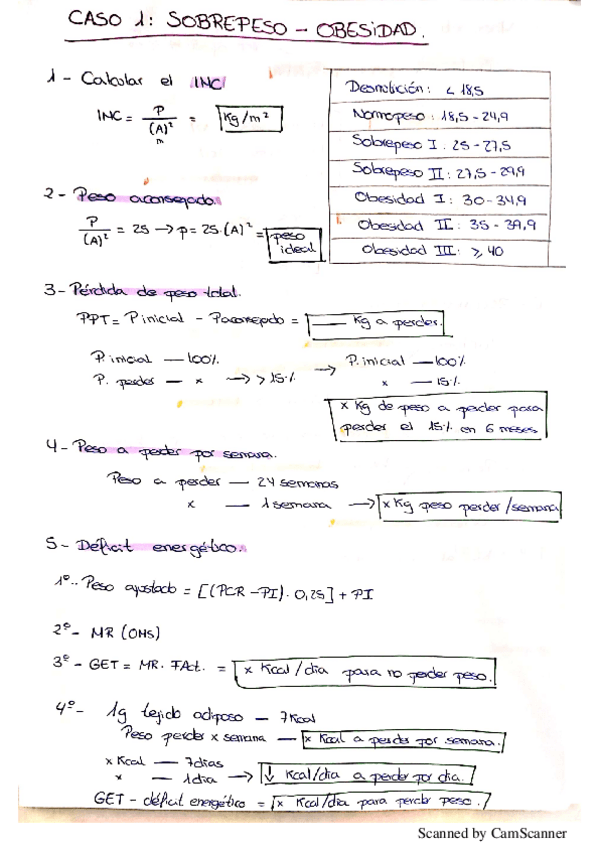 CASO 1: SOBREPESO – OBESIDAD.
1 - Calcular el INC
INC = P / (A)² m = Kg/m²
Desnutrición: < 18,5
Normopeso: 18,5 - 24,9
Sobrepeso I: 25 - 27,5
Sobrepeso II: 27,5 - 29,9
Obesidad I: 30 - 34,9
Obesidad II: 35 - 39,9
Obesidad III: ≥ 40
2 - Peso aconsejado.
P / (A)² = 25 → p = 25·(A)² = peso ideal
3 - Pérdida de peso total.
PPT = P inicial - Paconsejado = ___ Kg a perder.
P. inicial — 100%
P. perder — x → > 15%
→ P. inicial — 100%
x — 15%
x Kg de peso a perder para
perder el 15% en 6 meses
4 - Peso a perder por semana.
Peso a perder — 24 semanas
x — 1 semana → x Kg peso perder/semana
5 - Déficit energético.
1º.- Peso ajustado = [(PCR - PI) · 0,25] + PI
2º - MR (OMS)
3º - GET = MR · FAct. = x Kcal/dia para no perder peso.
4º - 1g tejido adiposo — 7Kcal
Peso perder x semana — x Kcal a perder por semana.
x Kcal — 7dias
x — 1dia → ↓ Kcal/dia a perder por dia.
GET - déficit energético = x Kcal/dia para perder peso.
Scanned by CamScanner